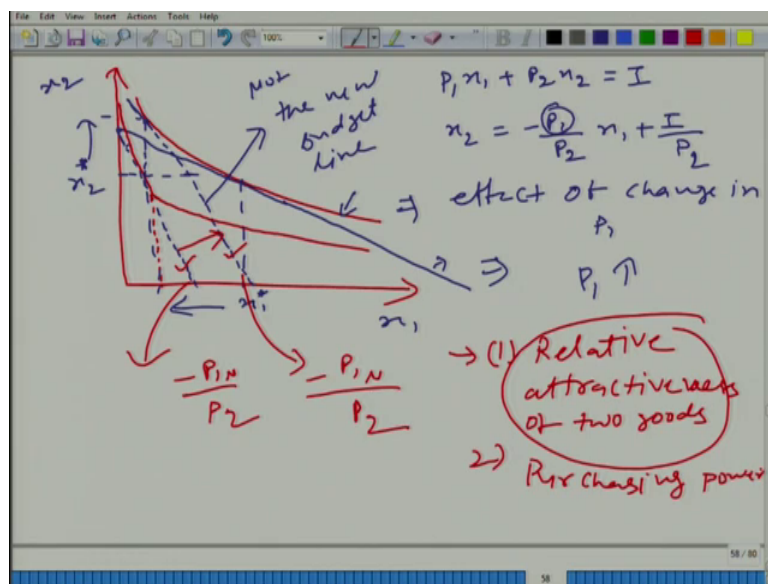 File Edit View Insert Actions Tools Help
100%
x2
Not
the new
budget
line
P1x1 + P2x2 = I
x2 = -P1/P2 x1 + I/P2
x2*
⇒ effect of change in
P1
⇒ P1 ↑
x1*
x1
-P1N/P2
-P1N/P2
→ (1) Relative
attractiveness
of two goods
2) Purchasing power
58 / 80
58